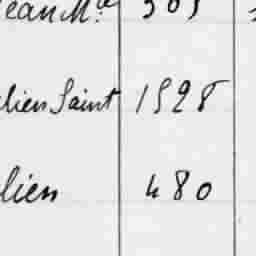 Jean M.ie 305
lien Saint 1528
lien 480